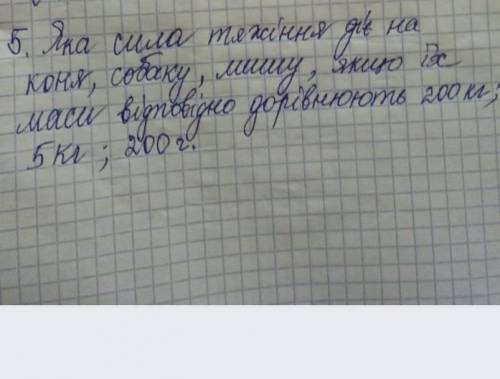 5. Яка сила тяжіння діє на
коня, собаку, мишу, якщо їх
маси відповідно дорівнюють 200кг;
5кг ; 200г.